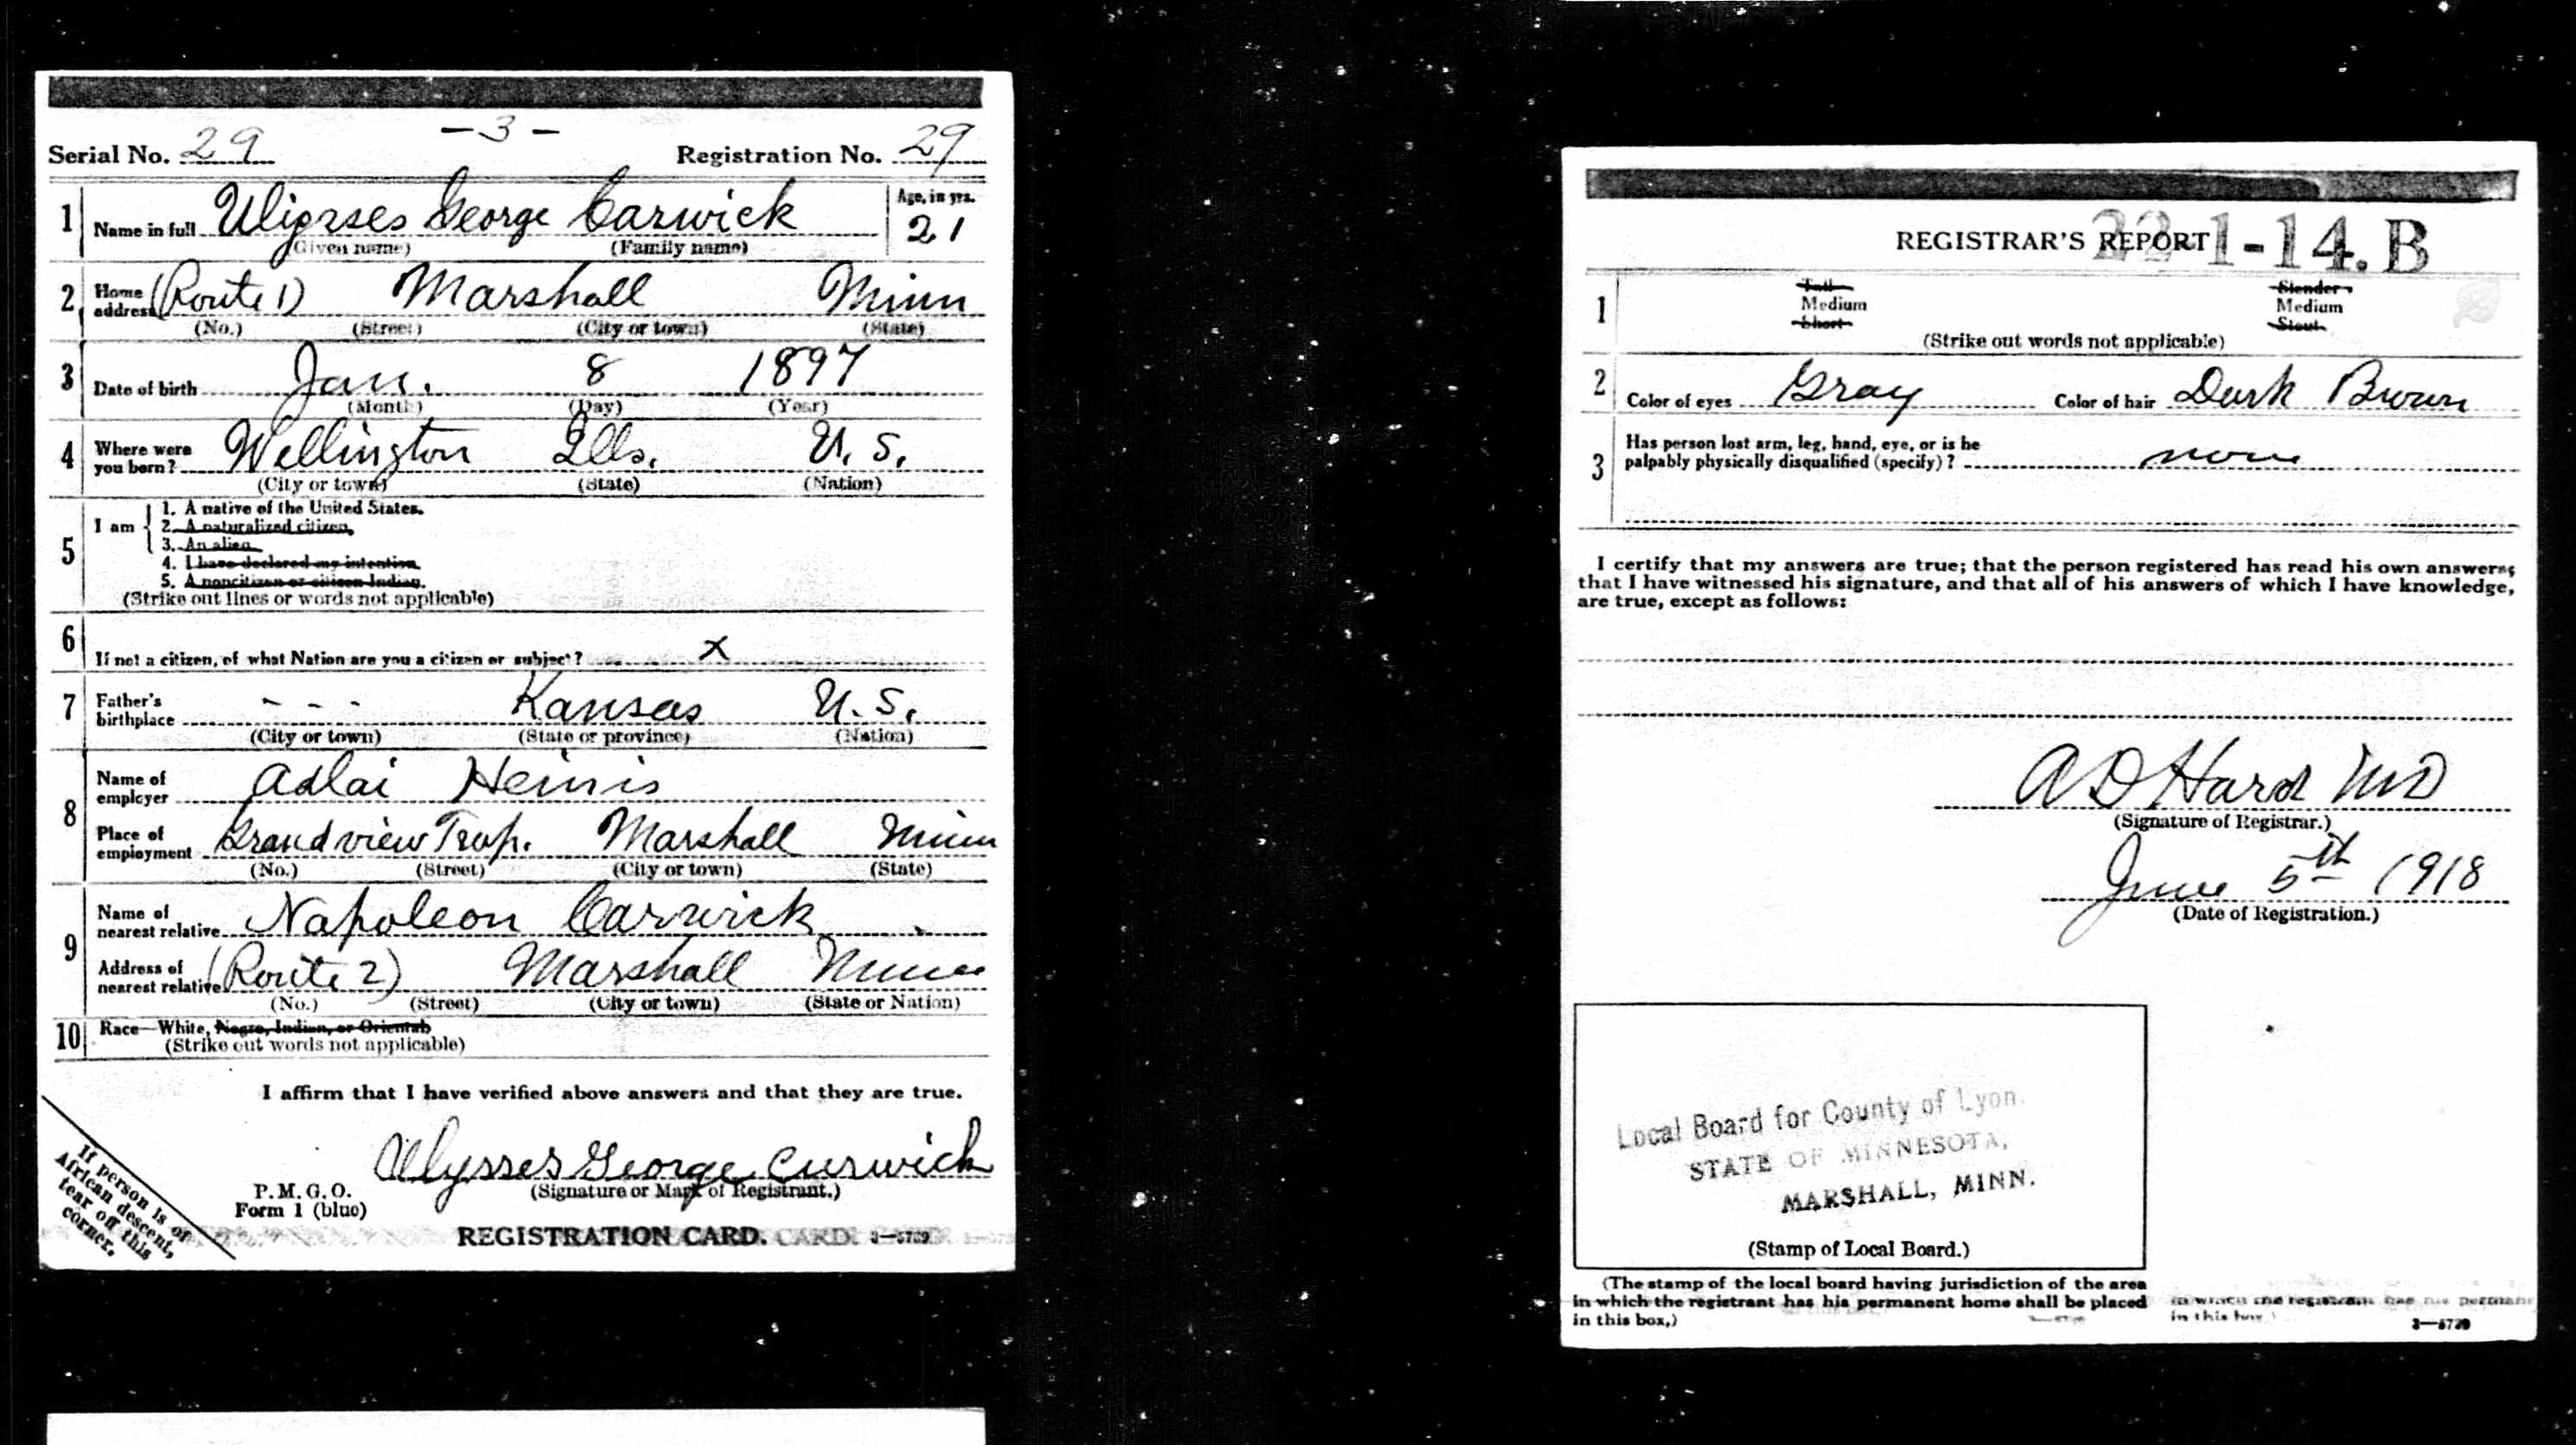 - 3 -
Serial No. 29 Registration No. 29
1 Name in full Uligrses George Carwick Age, in yrs. 21
(Given name) (Family name)
2 Home address (Route 1) Marshall Minn
(No.) (Street) (City or town) (State)
3 Date of birth Jan. 8 1897
(Month) (Day) (Year)
4 Where were you born? Wellington Ills. U. S.
(City or town) (State) (Nation)
5 I am
1. A native of the United States.
2. A naturalized citizen.
3. An alien.
4. I have declared my intention.
5. A noncitizen or citizen Indian.
(Strike out lines or words not applicable)
6 If not a citizen, of what Nation are you a citizen or subject? x
7 Father's birthplace - - - Kansas U. S.
(City or town) (State or province) (Nation)
8 Name of employer Adlai Heinis
Place of employment Grandview Twp. Marshall Minn
(No.) (Street) (City or town) (State)
9 Name of nearest relative Napoleon Carwick
Address of nearest relative (Route 2) Marshall Minn
(No.) (Street) (City or town) (State or Nation)
10 Race—White, Negro, Indian, or Oriental
(Strike out words not applicable)
I affirm that I have verified above answers and that they are true.
Ulysses George Curwick
(Signature or Mark of Registrant.)
P. M. G. O.
Form 1 (blue)
REGISTRATION CARD. CARD. 3—5729
If person is of
African descent,
tear off this
corner.
REGISTRAR'S REPORT 22-1-14. B
1 Tall Slender
Medium Medium
Short Stout
(Strike out words not applicable)
2 Color of eyes Gray Color of hair Dark Brown
3 Has person lost arm, leg, hand, eye, or is he
palpably physically disqualified (specify)? none
I certify that my answers are true; that the person registered has read his own answers;
that I have witnessed his signature, and that all of his answers of which I have knowledge,
are true, except as follows:
A D Hard MD
(Signature of Registrar.)
June 5th 1918
(Date of Registration.)
Local Board for County of Lyon.
STATE OF MINNESOTA,
MARSHALL, MINN.
(Stamp of Local Board.)
(The stamp of the local board having jurisdiction of the area
in which the registrant has his permanent home shall be placed
in this box.)
in which the registrant has his perman
in this box.)
3—5729